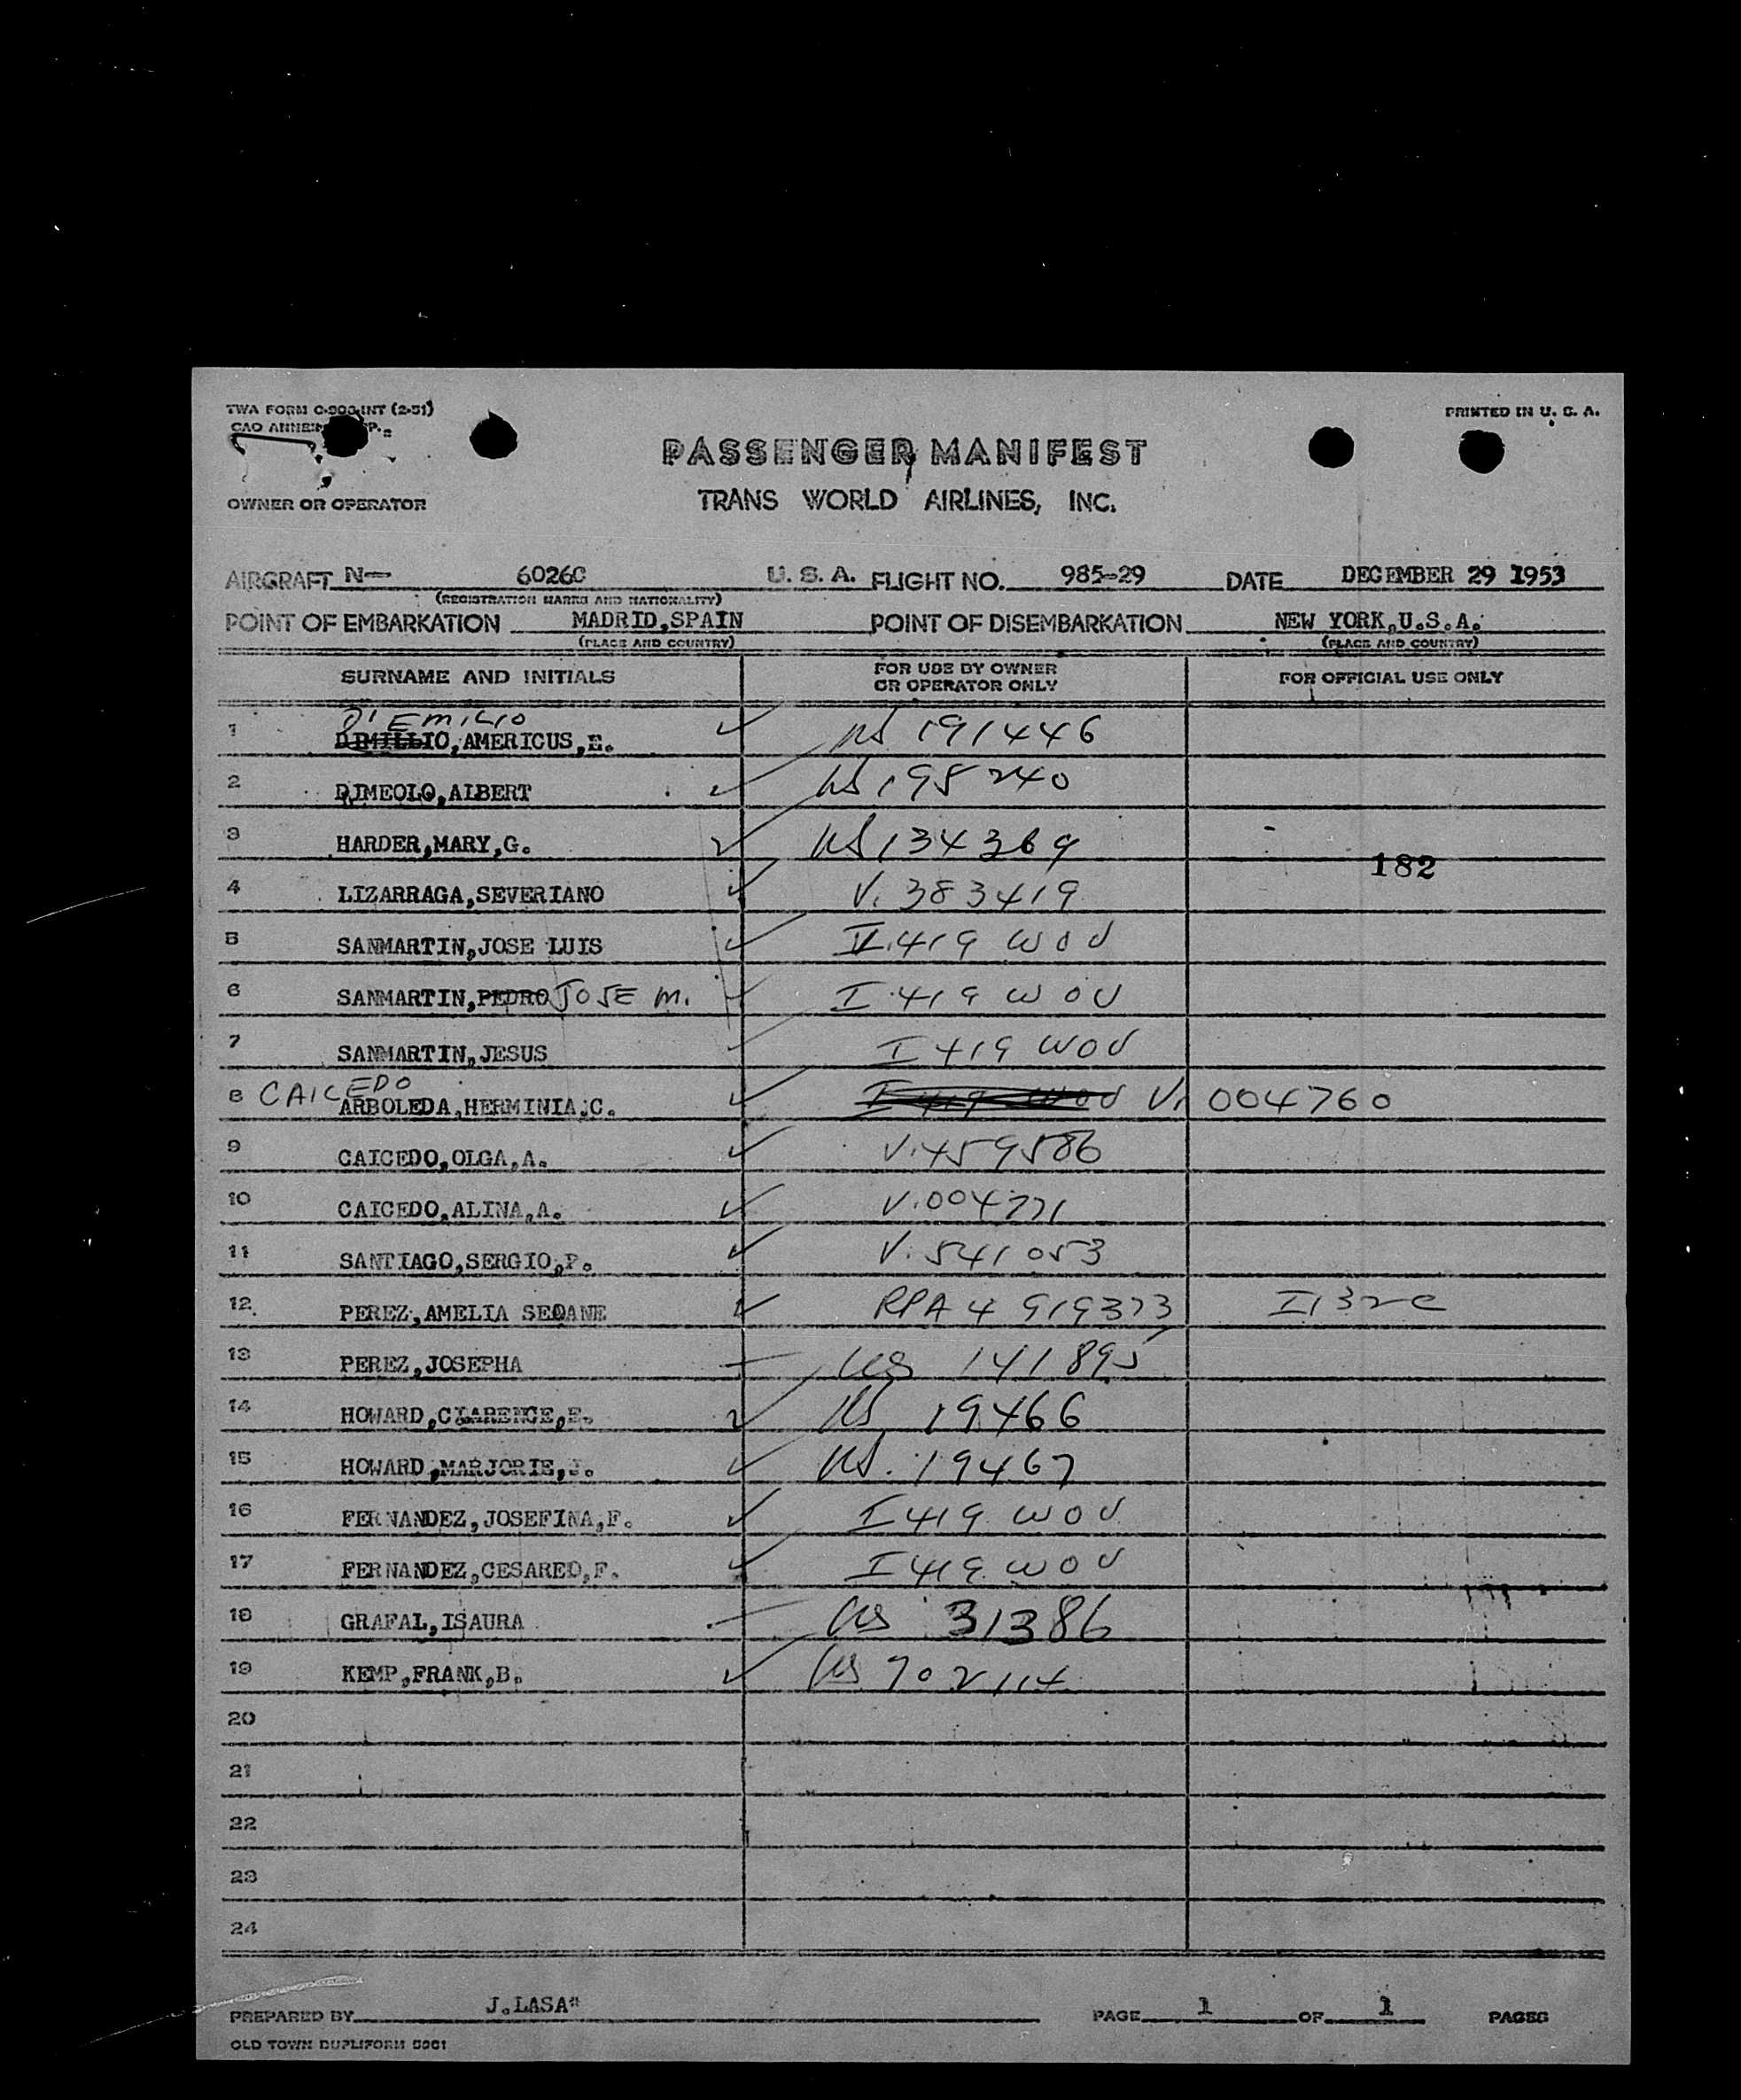 TWA FORM C-900-INT (2-51)
PRINTED IN U. S. A.
CAO ANNEX
PASSENGER MANIFEST
TRANS WORLD AIRLINES, INC.
OWNER OR OPERATOR
AIRCRAFT N- 6026C U. S. A. FLIGHT NO. 985-29 DATE DECEMBER 29 1953
(REGISTRATION MARKS AND NATIONALITY)
POINT OF EMBARKATION MADRID,SPAIN POINT OF DISEMBARKATION NEW YORK,U.S.A.
(PLACE AND COUNTRY) (PLACE AND COUNTRY)
SURNAME AND INITIALS FOR USE BY OWNER OR OPERATOR ONLY FOR OFFICIAL USE ONLY
D'EMILIO
1 DIMILLIO,AMERICUS,E. ✓ US 191446
2 DIMEOLO,ALBERT ✓ US 195240
3 HARDER,MARY,G. ✓ US 134369
182
4 LIZARRAGA,SEVERIANO ✓ V. 383419
5 SANMARTIN,JOSE LUIS ✓ I.419 WOV
6 SANMARTIN,PEDRO JOSE M. ✓ I.419 WOV
7 SANMARTIN,JESUS ✓ I 419 WOV
8 CAICEDO ARBOLEDA,HERMINIA,C. ✓ I 419 WOV V. 004760
9 CAICEDO,OLGA,A. ✓ V.459586
10 CAICEDO,ALINA,A. ✓ V.004771
11 SANTIAGO,SERGIO,P. ✓ V.541053
12 PEREZ,AMELIA SEOANE ✓ RPA 4 919373 I132c
13 PEREZ,JOSEPHA US 141895
14 HOWARD,CLARENCE,E. ✓ US 19466
15 HOWARD,MARJORIE,J. ✓ US. 19467
16 FERNANDEZ,JOSEFINA,F. ✓ I 419 WOV
17 FERNANDEZ,CESAREO,F. ✓ I 419 WOV
18 GRAFAL,ISAURA US 31386
19 KEMP,FRANK,B. ✓ US 702114
20
21
22
23
24
PREPARED BY J.LASA" PAGE 1 OF 1 PAGES
OLD TOWN DUPLIFORM 5061